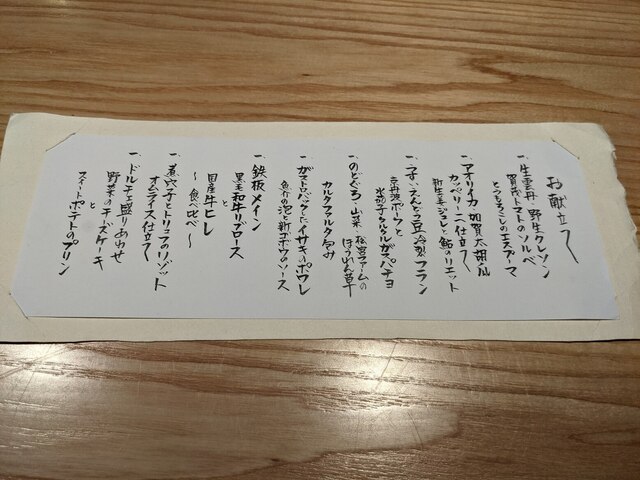 お献立て
一、生雲丹・野生クレソン
賀茂トマトのソルベ
とうもろこしのエスプーマ
一、アオリイカ 加賀太胡瓜
カッペリーニ仕立て
新生姜ジュレと鮎のリエット
一、うすいえんどう豆 冷製フラン
京丹波ポークと
水茄子とタルタルガスパチョ
一、のどぐろ・山菜・松豆ファームの
ほうれん草
カルタファタ包み
一、ガストロバックしたイサキのポワレ
魚介の泡と新ゴボウのソース
一、鉄板メイン
黒毛和牛リブロース
国産牛ヒレ
〜食べ比べ〜
一、煮穴子とトリュフのリゾット
オムライス仕立て
一、ドルチェ盛りあわせ
野菜のチーズケーキ
と
スイートポテトのプリン